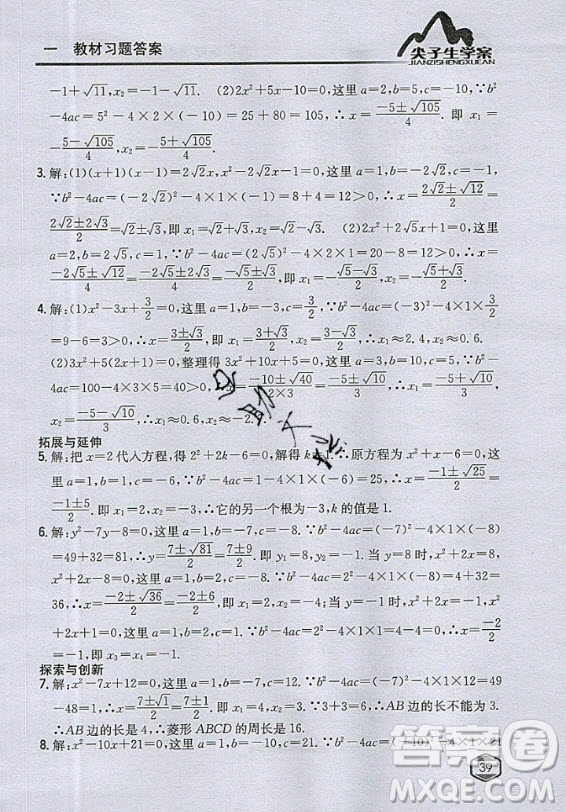 尖子生学案
JIANZISHENGXUEAN
一 教材习题答案
-1+√11,x₂=-1-√11. (2)2x²+5x-10=0,这里a=2,b=5,c=-10.∵b²
-4ac=5²-4×2×(-10)=25+80=105,∴x=(-5±√105)/4. 即 x₁=
(-5-√105)/4, x₂=(-5+√105)/4.
3. 解:(1)(x+1)(x-1)=2√2x,x²-2√2x-1=0,这里a=1,b=-2√2,c=-1,
∵b²-4ac=(-2√2)²-4×1×(-1)=8+4=12>0,∴x=(2√2±√12)/2=
(2√2±2√3)/2=√2±√3,即x₁=√2+√3,x₂=√2-√3. (2)2x²-2√5x+1=0,
这里a=2,b=-2√5,c=1.∵b²-4ac=(-2√5)²-4×2×1=20-8=12>0,∴x
=(2√5±√12)/4=(√5±√3)/2,即x₁=(√5+√3)/2,x₂=(√5-√3)/2.
4. 解:(1)x²-3x+3/2=0,这里a=1,b=-3,c=3/2.∵b²-4ac=(-3)²-4×1×3/2
=9-6=3>0,∴x=(3±√3)/2,即x₁=(3+√3)/2,x₂=(3-√3)/2.∴x₁≈2.4,x₂≈0.6.
(2)3x²+5(2x+1)=0,整理得3x²+10x+5=0,这里a=3,b=10,c=5.∵b²-
4ac=100-4×3×5=40>0,∴x=(-10±√40)/(2×3)=(-5±√10)/3.即x₁=(-5+√10)/3,
x₂=(-5-√10)/3,∴x₁≈-0.6,x₂≈-2.7
拓展与延伸
5. 解:把x=2代入方程,得2²+2k-6=0,解得k=1.∵原方程为x²+x-6=0,这
里a=1,b=1,c=-6.∵b²-4ac=1²-4×1×(-6)=1+24=25,∴x=
(-1±5)/2.即x₁=2,x₂=-3,∴它的另一个根为-3,k的值是1.
6. 解:y²-7y-8=0,这里a=1,b=-7,c=-8.∵b²-4ac=(-7)²-4×1×(-8)
=49+32=81,∴y=(7±√81)/2=(7±9)/2.即y₁=8,y₂=-1.当y=8时,
x²+2x=8,这里a=1,b=2,c=-8.∵b²-4ac=2²-4×1×(-8)=4+32=
36,∴x=(-2±√36)/2=(-2±6)/2,即x₁=2,x₂=-4;当y=-1时,x²+2x+1
=0.这里a=1,b=2,c=1.∵b²-4ac=2²-4×1×1=4-4=0,∴x=-2/2=
-1.即x₃=x₄=-1.
探索与创新
7. 解:x²-7x+12=0,这里a=1,b=-7,c=12.∵b²-4ac=(-7)²-4×1×12=49
-48=1,∴x=(7±√1)/2=(7±1)/2,即x₁=4,x₂=3.∵AB边的长不能为3.
∴AB边的长是4,∴菱形ABCD的周长是16.
8. 解:x²-10x+21=0,这里a=1,b=-10,c=21.∵b²-4ac=(-10)²-4×1×21
39
答案圈
MXQE.COM